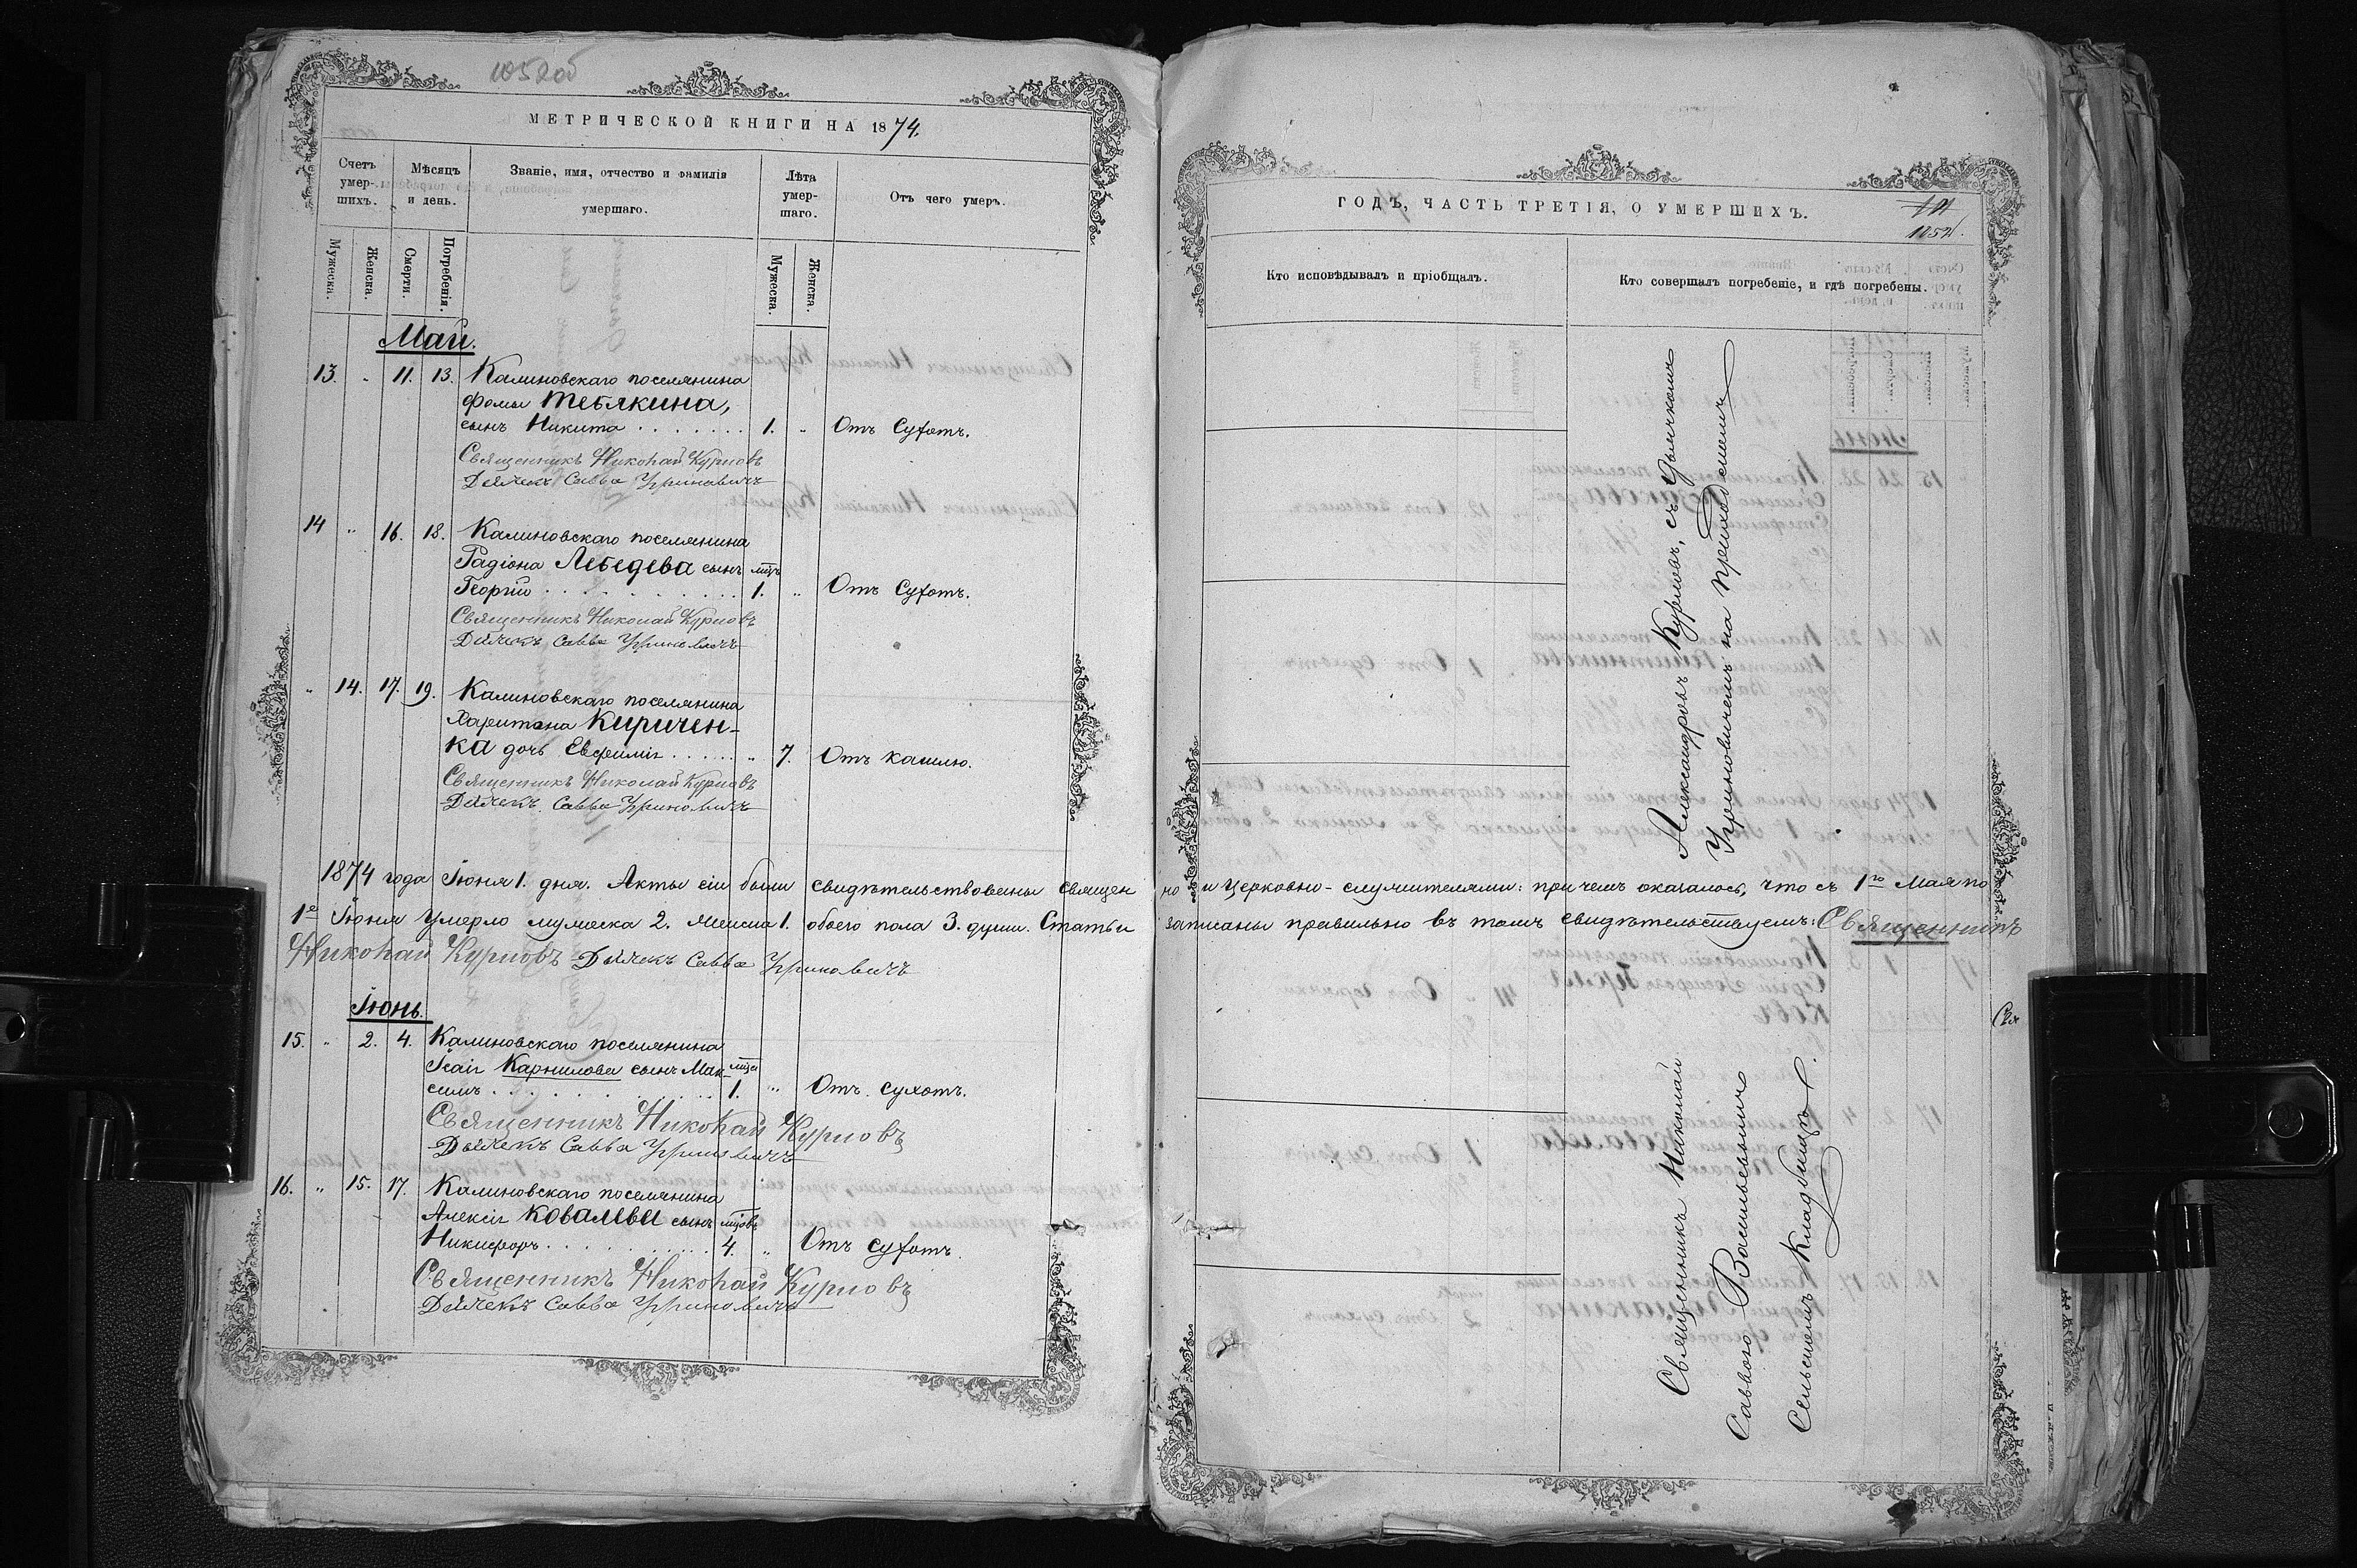 МЕТРИЧЕСКОЙ КНИГИ НА 1874.
Счетъ умер-шихъ.
Мѣсяцъ и день.
Званіе, имя, отчество и фамилія умершаго.
Лѣта умер-шаго.
Отъ чего умеръ.
Мужеска.
Женска.
Смерти.
Погребенія.
Мужеска.
Женска.
Май.
13. " 11. 13. Калиновскаго поселянина
Фомы Тебякина,
сынъ Никита 1. " Отъ сухотъ.
Священникъ Николай Курловъ
Дьячекъ Савва Угриновичъ
14 " 16. 18. Калиновскаго поселянина
Радіона Лебедева сынъ мцъ
Георгій 1. " Отъ сухотъ.
Священникъ Николай Курловъ
Дьячекъ Савва Угриновичъ
" 14. 17. 19. Калиновскаго поселянина
Харитона Киричен-
ка дочь Евфимія " 7. Отъ кашлю.
Священникъ Николай Курловъ
Дьячекъ Савва Угриновичъ
1874 года Іюня 1. дня. Акты сіи были свидѣтельствованы священ
1е Іюня умерло мужеска 2. женска 1. обоего пола 3. души. Статьи
Николай Курловъ Дьячекъ Савва Угриновичъ
Іюнь.
15. " 2. 4. Калиновскаго поселянина
Ісаіи Карнилова сынъ Мак-
симъ 1. " Отъ сухотъ.
Священникъ Николай Курловъ
Дьячекъ Савва Угриновичъ
16. " 15. 17. Калиновскаго поселянина
Алексія Ковалева сынъ мцовъ
Никифоръ 4. " Отъ сухотъ.
Священникъ Николай Курловъ
Дьячекъ Савва Угриновичъ
ГОДЪ, ЧАСТЬ ТРЕТІЯ, О УМЕРШИХЪ.
1052
Кто исповѣдывалъ и пріобщалъ.
Кто совершалъ погребеніе, и гдѣ погребены.
но и церковно-служителями: при чемъ оказалось, что съ 1го Мая по
записаны правильно въ томъ свидѣтельствуемъ: Священникъ
Священникъ Николай Александровъ Курловъ, съ дьячкомъ
Саввою Васильевичемъ Угриновичемъ на приходскомъ
Сельскомъ Кладбищѣ.